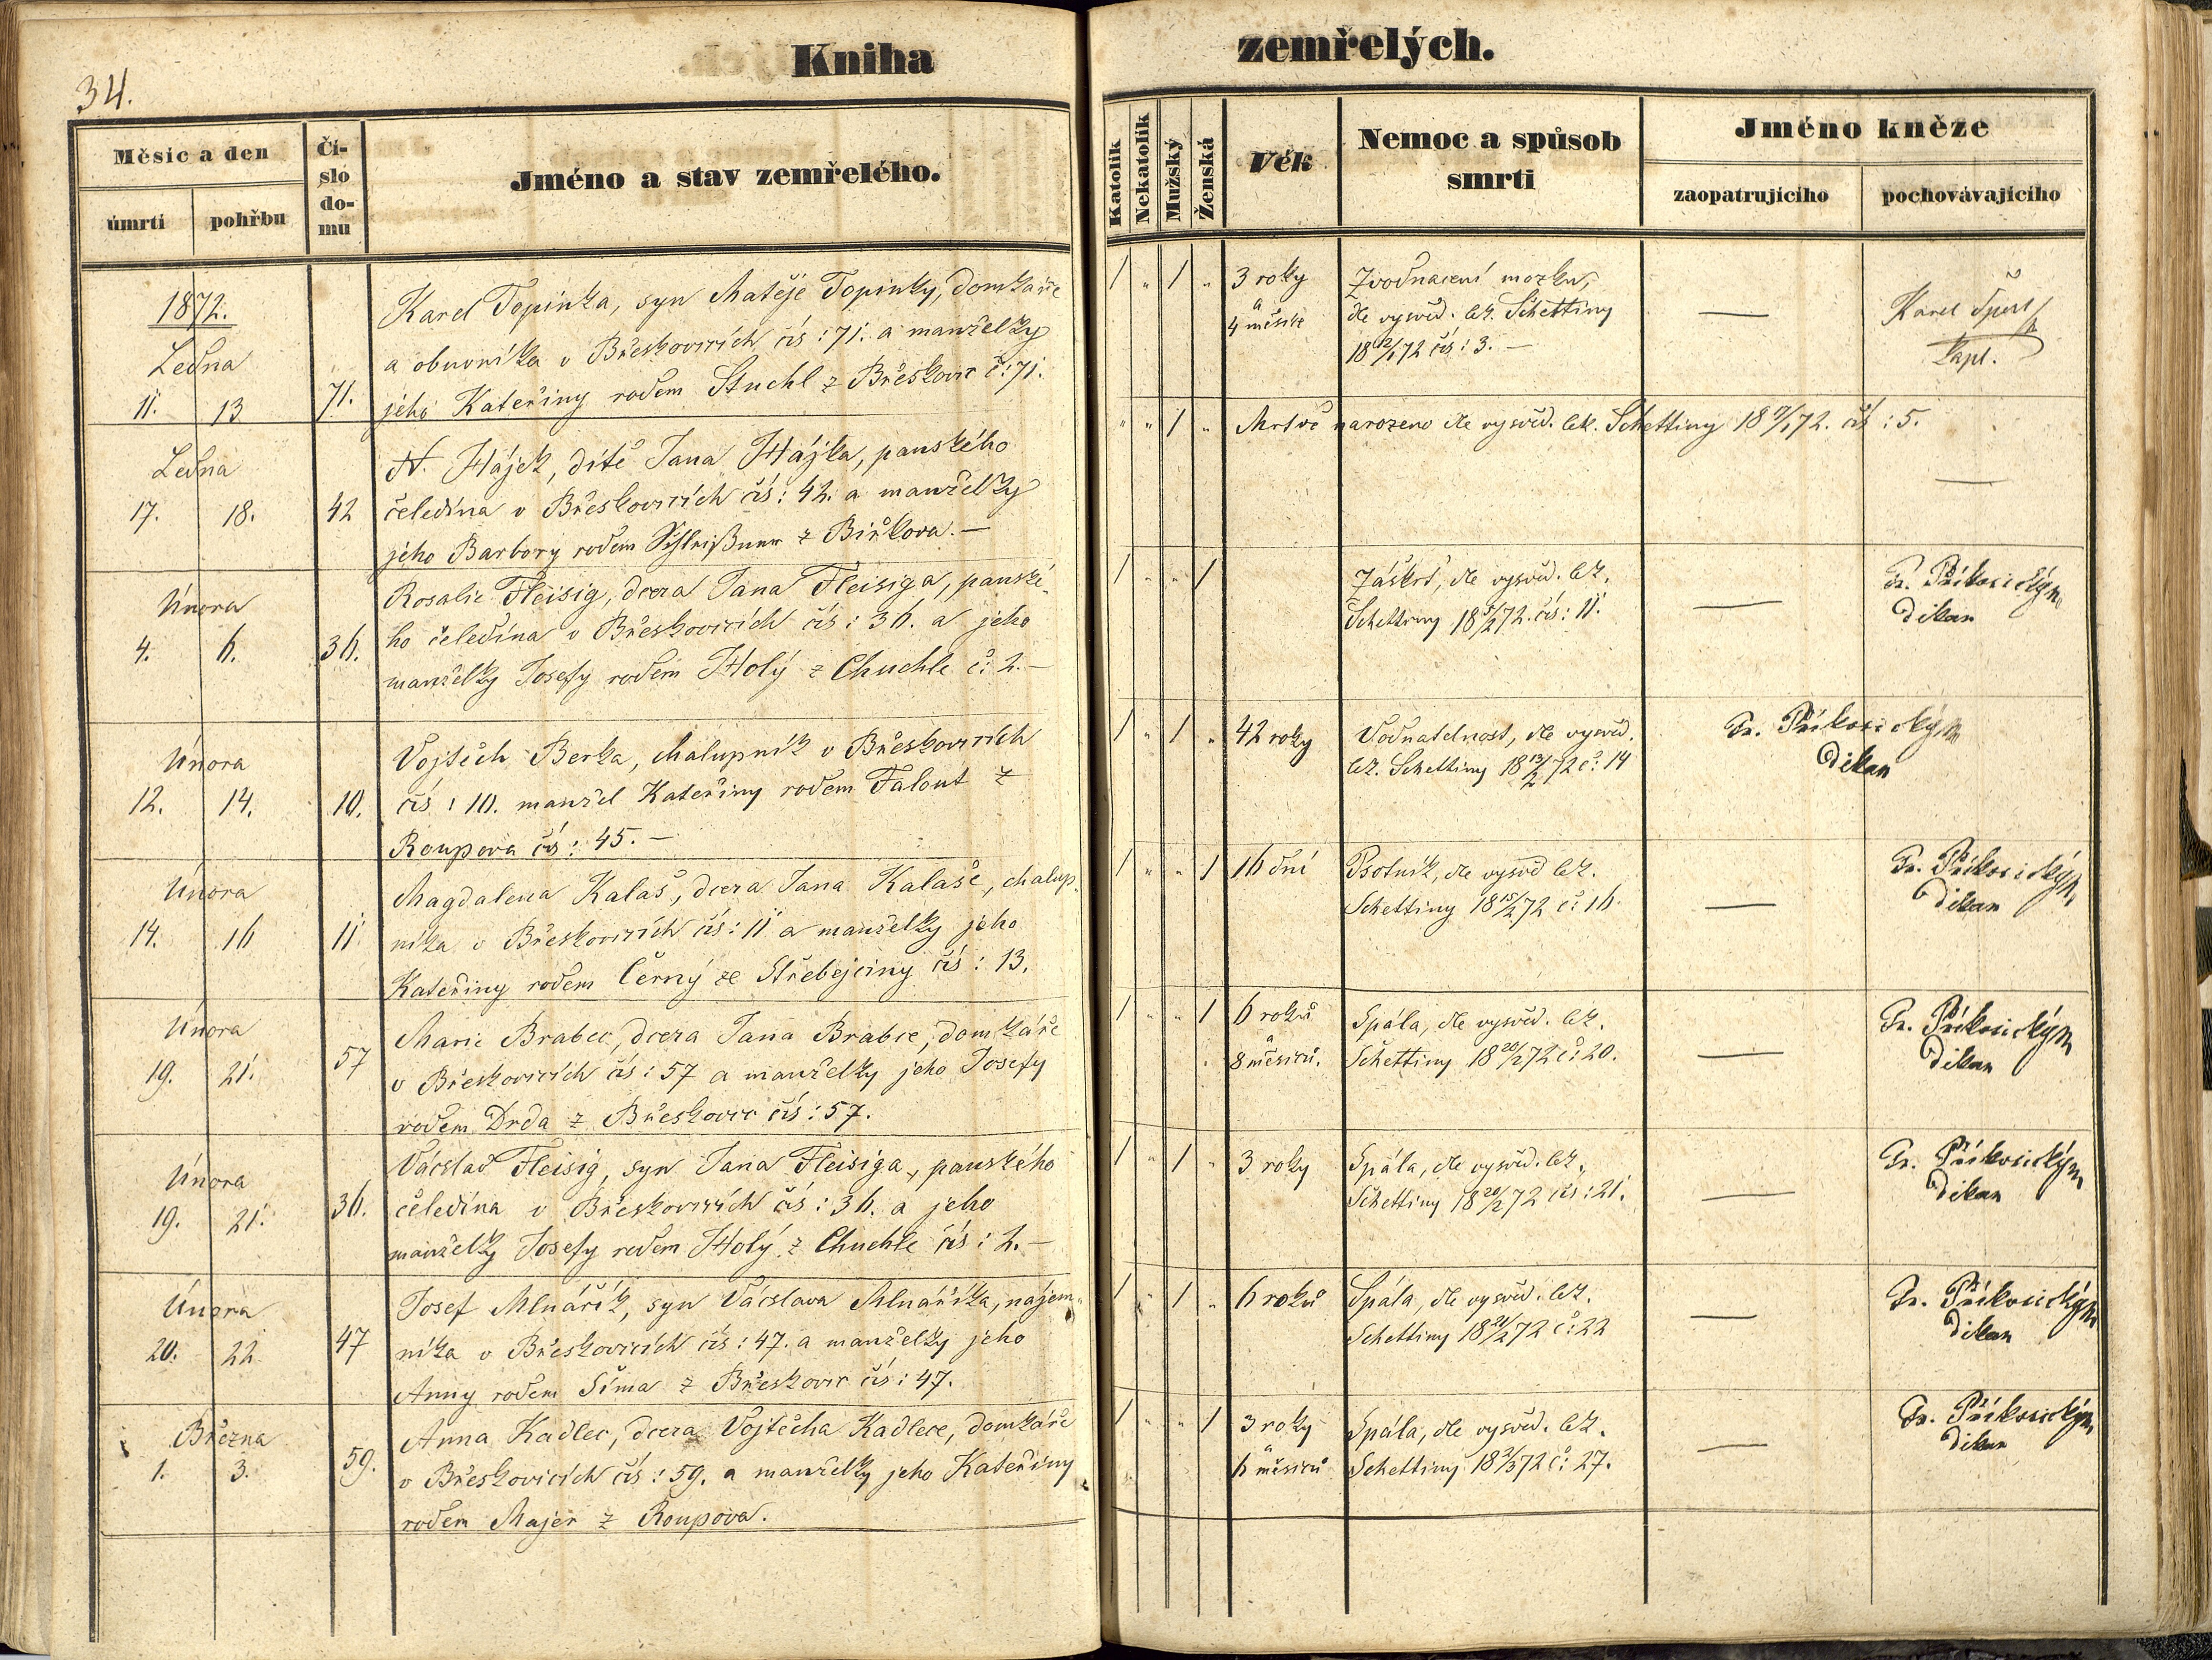 34.
Kniha
zemřelých.
Měsíc a den
úmrtí
pohřbu
Číslo domu
Jméno a stav zemřelého.
Katolík
Nekatolík
Mužský
Ženská
Věk
Nemoc a spůsob
smrti
Jméno kněze
zaopatrujícího
pochovávajícího
1872.
Ledna
11. 13 71.
Karel Topinka, syn Matěje Topinky, domkáře
a obuvníka v Břeskovicích čís: 71. a manželky
jeho Kateřiny rodem Stuchl z Břeskovic č: 71.
1 „ 1 „
3 roky
a
4 měsíce
Zvodnacení mozku,
dle vysvěd. lék. Schettiny
18 12/1 72 čís: 3. —
—
Karel Šperl
kapl.
Ledna
17. 18. 42
N. Hájek, dítě Jana Hájka, panského
čeledína v Břeskovicích čís: 42. a manželky
jeho Barbory rodem z Biřkova. —
„ „ 1 „
Mrtvě narozeno dle vysvěd. lék. Schettiny 18 17/1 72. čís: 5.
—
Února
4. 6. 36.
Rosalie Fleisig, dcera Jana Fleisiga, panské-
ho čeledína v Břeskovicích čís: 36. a jeho
manželky Josefy rodem Holý z Chuchle č: 2. —
1 „ „ 1
Záškrt, dle vysvěd. lék.
Schettiny 18 5/2 72. čís: 11.
—
Fr. Příkosický
děkan
Února
12. 14. 10.
Vojtěch Berka, chalupník v Břeskovicích
čís: 10. manžel Kateřiny rodem Falout z
Roupova čís: 45. —
1 „ 1 „
42 roky
Vodnatelnost, dle vysvěd.
lék. Schettiny 18 13/2 72 č: 14
Fr. Příkosický
děkan
Února
14. 16 11
Magdalena Kalaš, dcera Jana Kalaše, chalup-
níka v Břeskovicích čís: 11 a manželky jeho
Kateřiny rodem Černý ze Střebejciny čís: 13.
1 „ „ 1
16 dní
Psotník, dle vysvěd lék.
Schettiny 18 15/2 72 č: 16.
—
Fr. Příkosický
děkan
Února
19. 21. 57
Marie Brabec, dcera Jana Brabce, domkáře
v Břeskovicích čís: 57 a manželky jeho Josefy
rodem Drda z Břeskovic čís: 57.
1 „ „ 1
6 roků
a
8 měsíců.
Spála, dle vysvěd. lék.
Schettiny 18 20/2 72 č: 20.
—
Fr. Příkosický
děkan
Února
19. 21. 36.
Václav Fleisig, syn Jana Fleisiga, panského
čeledína v Břeskovicích čís: 36. a jeho
manželky Josefy rodem Holý z Chuchle čís: 2. —
1 „ 1 „
3 roky
Spála, dle vysvěd. lék.
Schettiny 18 20/2 72 čís: 21.
—
Fr. Příkosický
děkan
Února
20. 22 47
Josef Mlnářík, syn Václava Mlnaříka, nájem-
níka v Břeskovicích čís: 47. a manželky jeho
Anny rodem Šíma z Břeskovic čís: 47.
1 „ 1 „
6 roků
Spála, dle vysvěd. lék.
Schettiny 18 21/2 72 č: 22
—
Fr. Příkosický
děkan
Března
1. 3. 59.
Anna Kadlec, dcera Vojtěcha Kadlece, domkáře
v Břeskovicích čís: 59. a manželky jeho Kateřiny
rodem Majer z Roupova.
1 „ „ 1
3 roky
a
6 měsíců
Spála, dle vysvěd. lék.
Schettiny 18 2/3 72 č: 27.
—
Fr. Příkosický
děkan